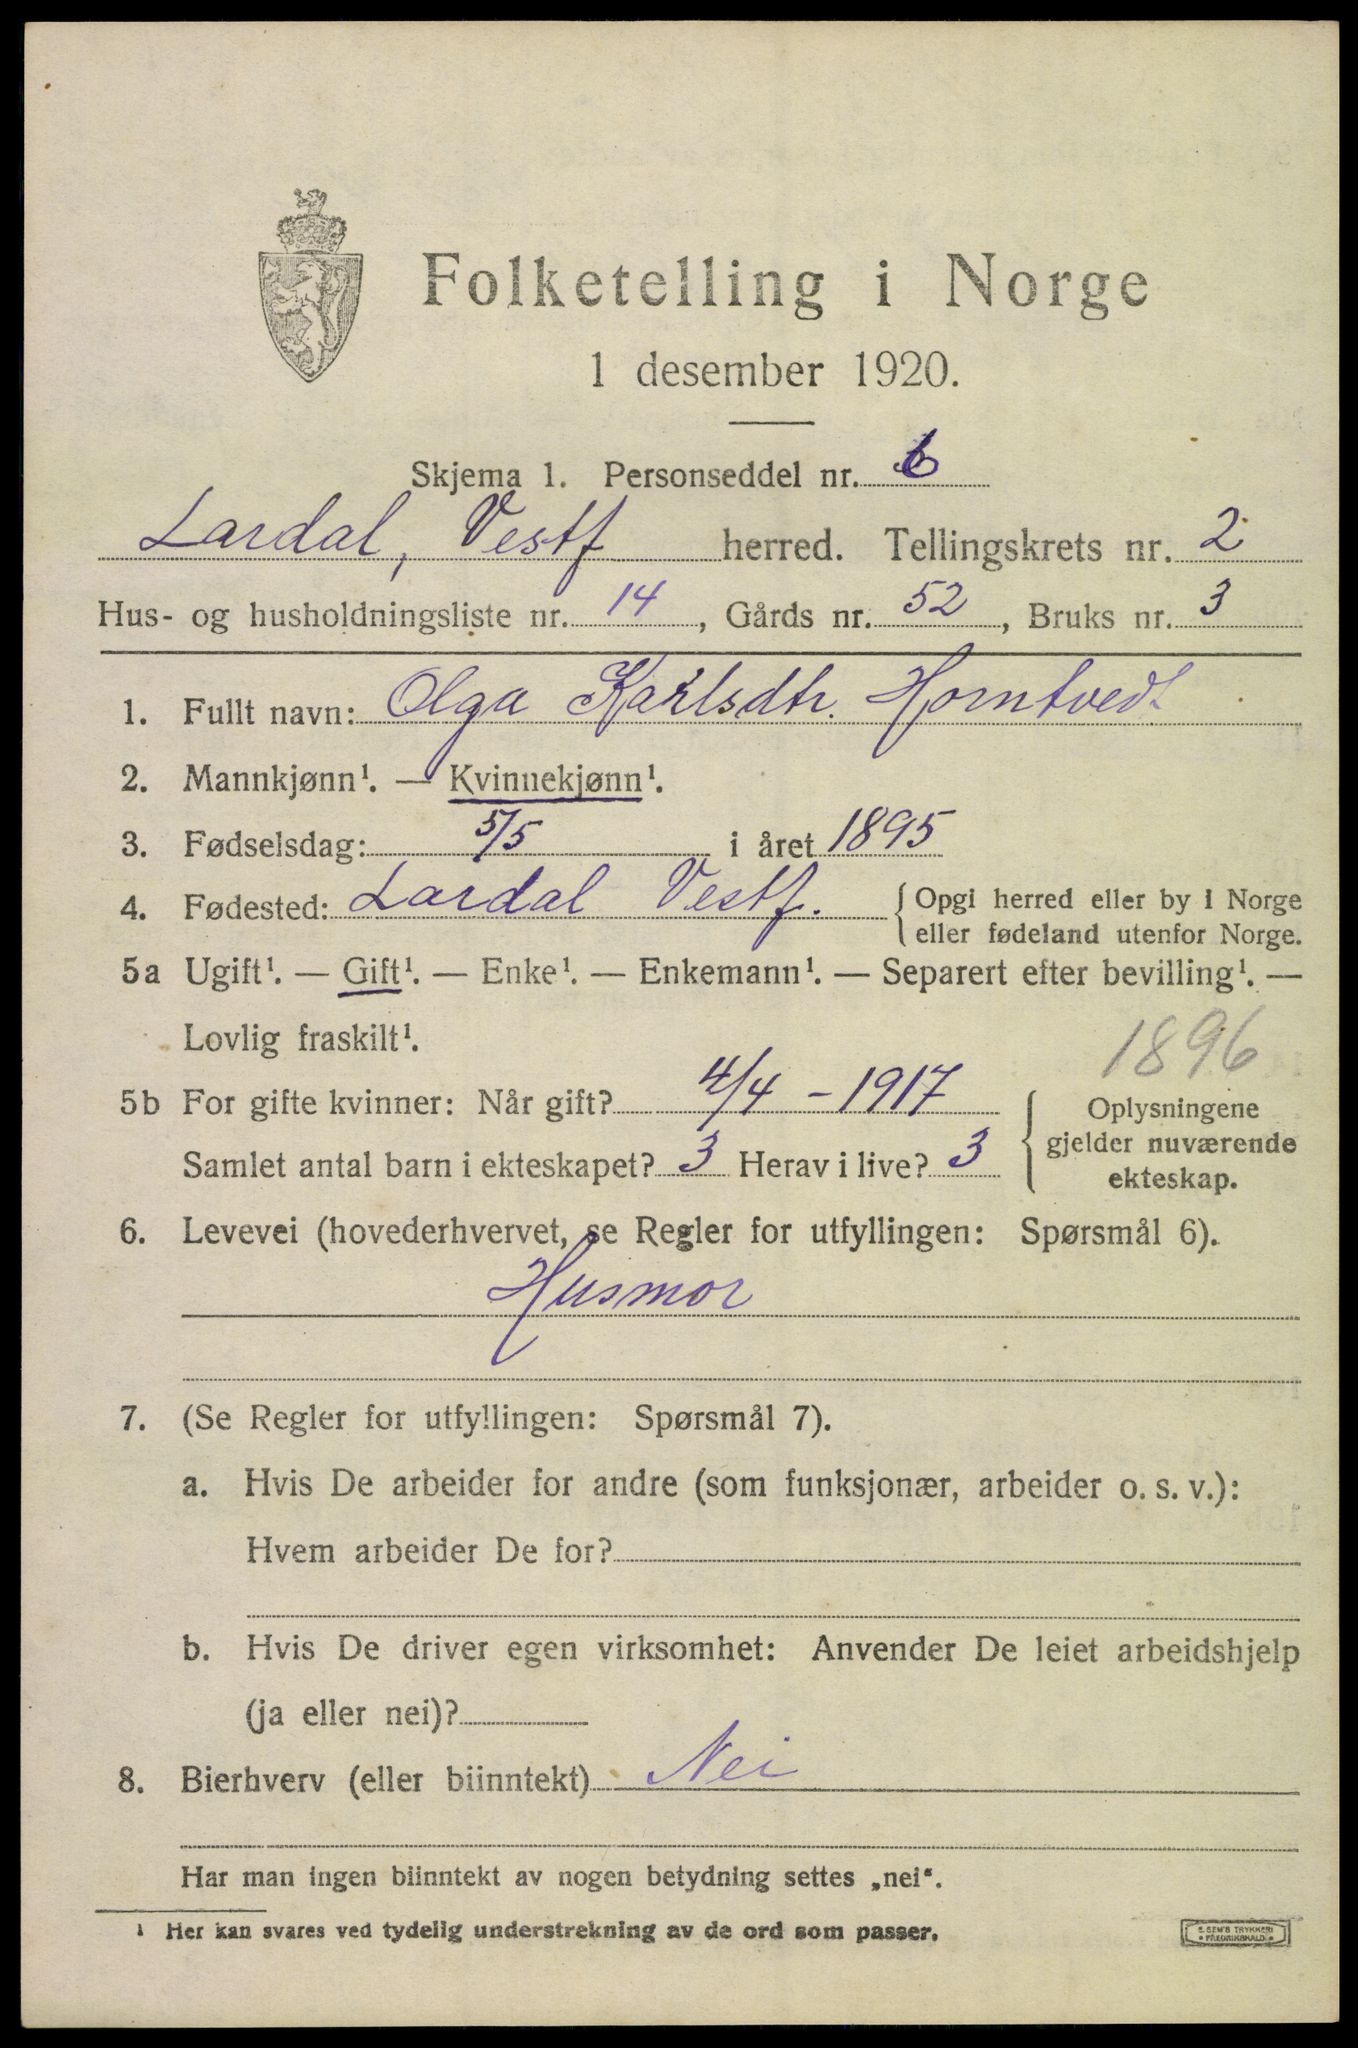 Folketelling i Norge
1 desember 1920.
Skjema 1. Personseddel nr. 6
Lardal, Vestf herred. Tellingskrets nr. 2
Hus- og husholdningsliste nr. 14, Gårds nr. 52, Bruks nr. 3
1. Fullt navn: Olga Karlsdtr. Horntvedt
2. Mannkjønn¹. — Kvinnekjønn¹.
3. Fødselsdag: 5/5 i året 1895
4. Fødested: Lardal Vestf. { Opgi herred eller by i Norge
eller fødeland utenfor Norge.
5a Ugift¹. — Gift¹. — Enke¹. — Enkemann¹. — Separert efter bevilling¹. —
Lovlig fraskilt¹.
1896
5b For gifte kvinner: Når gift? 4/4 - 1917
Samlet antal barn i ekteskapet? 3 Herav i live? 3
{ Oplysningene
gjelder nuværende
ekteskap.
6. Levevei (hovederhvervet, se Regler for utfyllingen: Spørsmål 6).
Husmor
7. (Se Regler for utfyllingen: Spørsmål 7).
a. Hvis De arbeider for andre (som funksjonær, arbeider o. s. v.):
Hvem arbeider De for?
b. Hvis De driver egen virksomhet: Anvender De leiet arbeidshjelp
(ja eller nei)?
8. Bierhverv (eller biinntekt) Nei
Har man ingen biinntekt av nogen betydning settes „nei“.
¹ Her kan svares ved tydelig understrekning av de ord som passer.
E. SEM'S TRYKKERI
FREDRIKSHALD